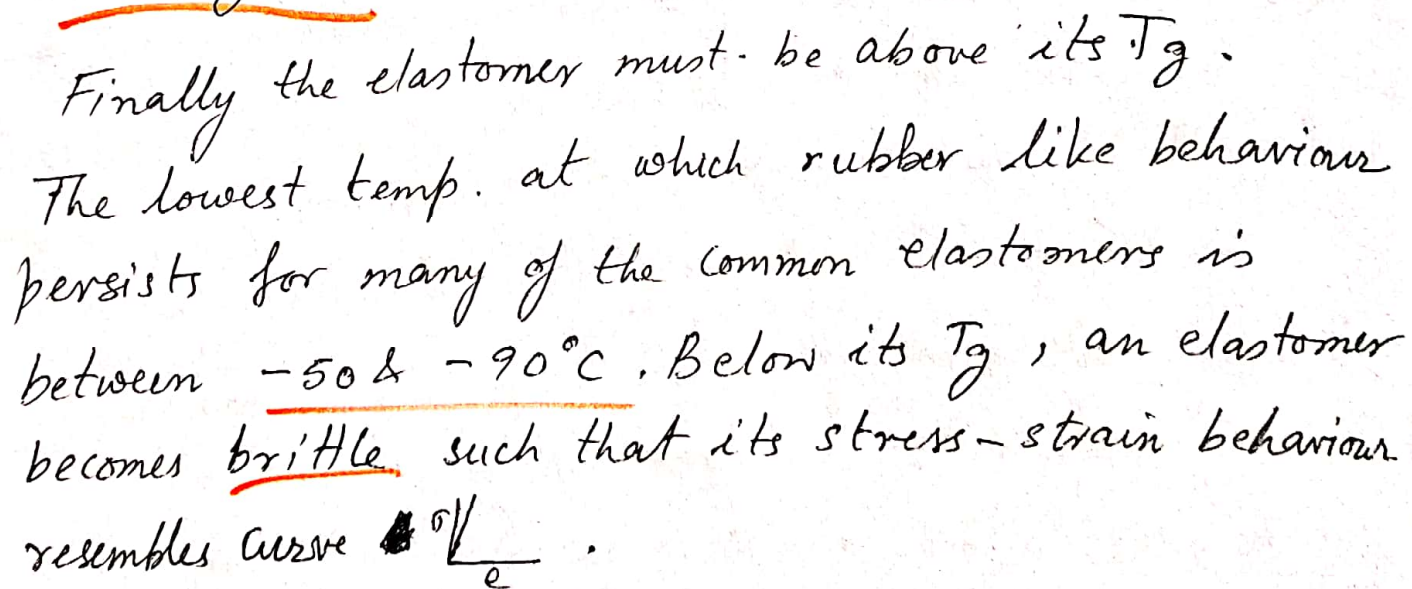 Finally the elastomer must be above its Tg.
The lowest temp. at which rubber like behaviour
persists for many of the common elastomers is
between -50 & -90°C. Below its Tg, an elastomer
becomes brittle such that its stress-strain behaviour
resembles curve σ
e .